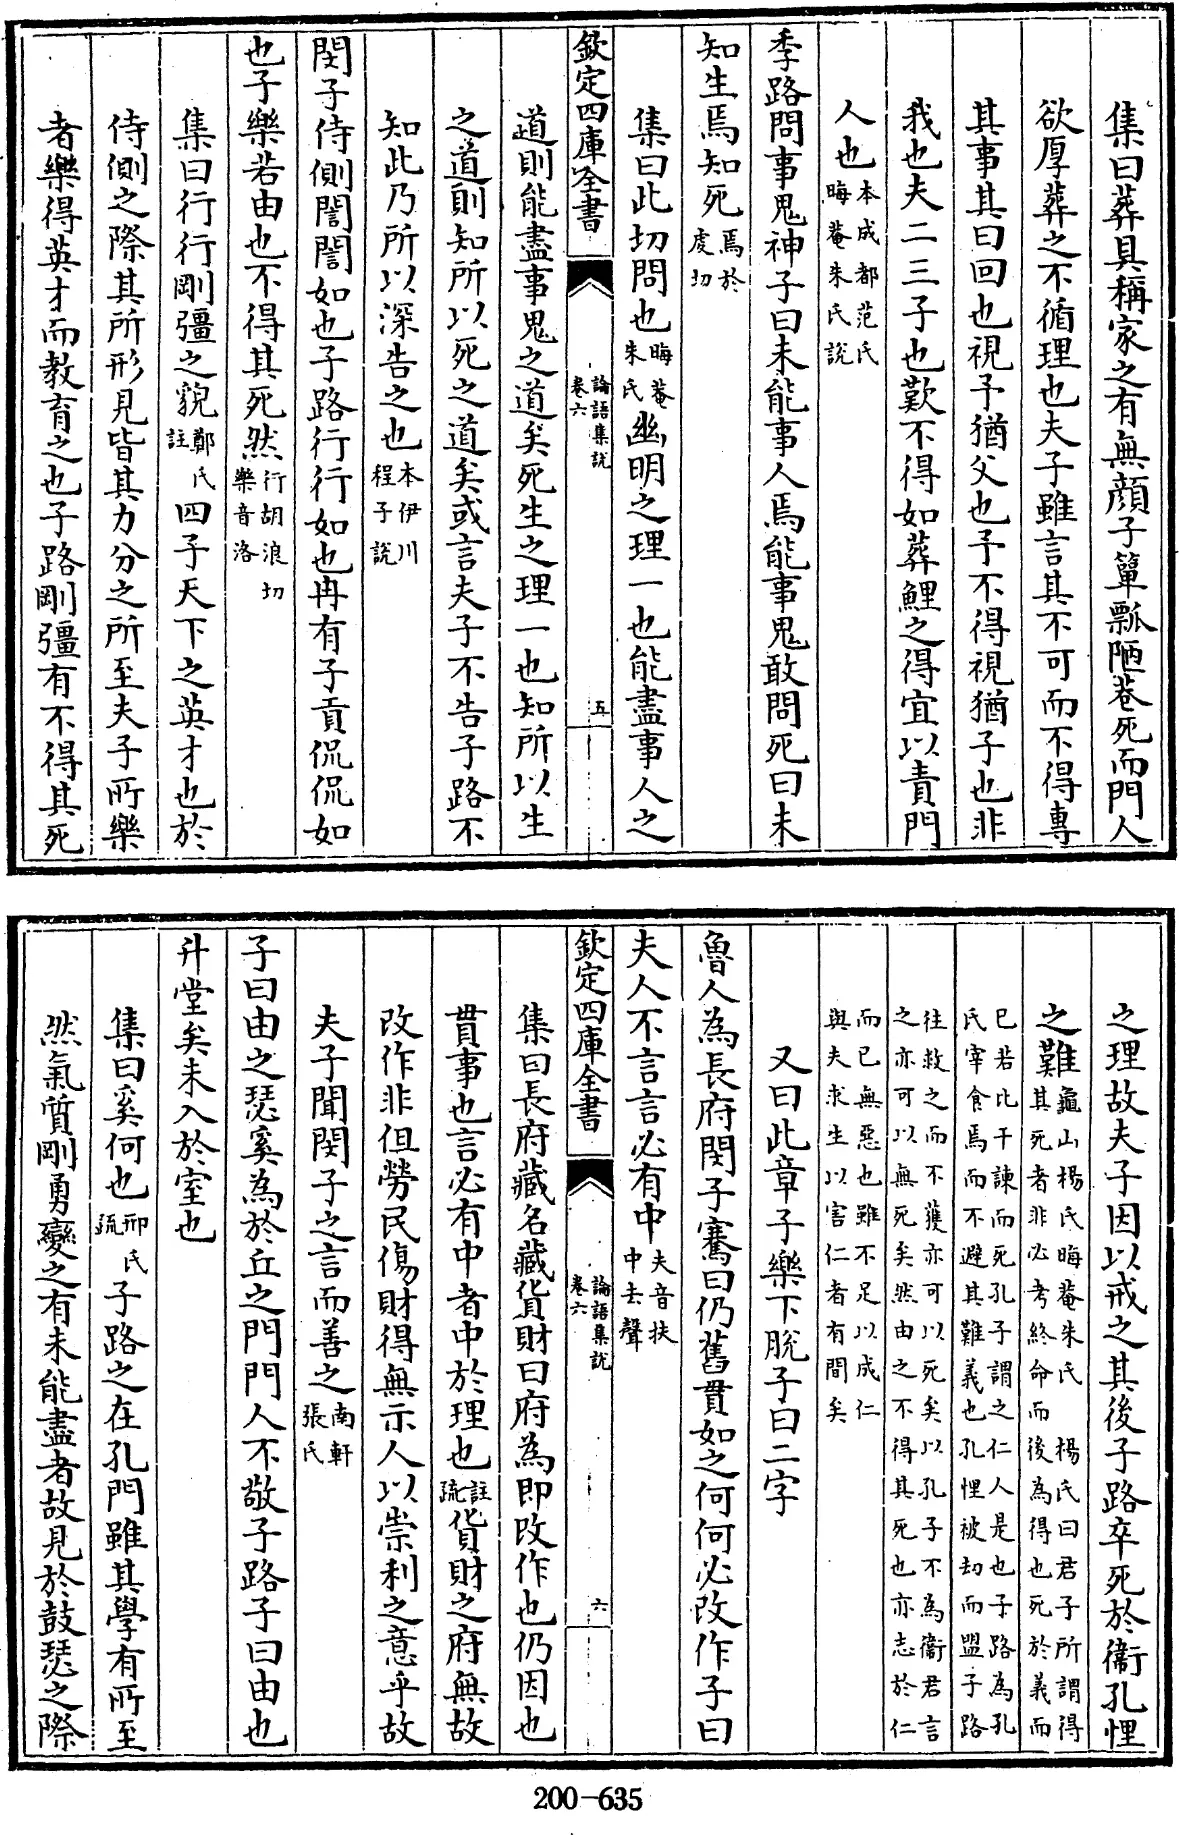 集曰葬具稱家之有無顔子簞瓢陋巷死而門人
欲厚葬之不循理也夫子雖言其不可而不得專
其事其曰回也視予猶父也予不得視猶子也非
我也夫二三子也歎不得如葬鯉之得宜以責門
人也本成都范氏晦菴朱氏說
季路問事鬼神子曰未能事人焉能事鬼敢問死曰未
知生焉知死焉於虔切
集曰此切問也晦菴朱氏幽明之理一也能盡事人之
欽定四庫全書 論語集說卷六 五
道則能盡事鬼之道矣死生之理一也知所以生
之道則知所以死之道矣或言夫子不告子路不
知此乃所以深告之也本伊川程子說
閔子侍側誾誾如也子路行行如也冉有子貢侃侃如
也子樂若由也不得其死然行胡浪切樂音洛
集曰行行剛彊之貌鄭氏註四子天下之英才也於
侍側之際其所形見皆其力分之所至夫子所樂
者樂得英才而教育之也子路剛彊有不得其死
之理故夫子因以戒之其後子路卒死於衞孔悝
之難龜山楊氏晦菴朱氏 楊氏曰君子所謂得其死者非必考終命而後為得也死於義而
已若比干諫而死孔子謂之仁人是也子路為孔氏宰食焉而不避其難義也孔悝被刼而盟子路
往救之而不獲亦可以死矣以孔子不為衞君言之亦可以無死矣然由之不得其死也亦志於仁
而已無惡也雖不足以成仁與夫求生以害仁者有間矣
又曰此章子樂下脫子曰二字
魯人為長府閔子騫曰仍舊貫如之何何必改作子曰
夫人不言言必有中夫音扶中去聲
欽定四庫全書 論語集說卷六 六
集曰長府藏名藏貨財曰府為即改作也仍因也
貫事也言必有中者中於理也註疏貨財之府無故
改作非但勞民傷財得無示人以崇利之意乎故
夫子聞閔子之言而善之南軒張氏
子曰由之瑟奚為於丘之門門人不敬子路子曰由也
升堂矣未入於室也
集曰奚何也邢氏疏子路之在孔門雖其學有所至
然氣質剛勇變之有未能盡者故見於鼓瑟之際
200-635